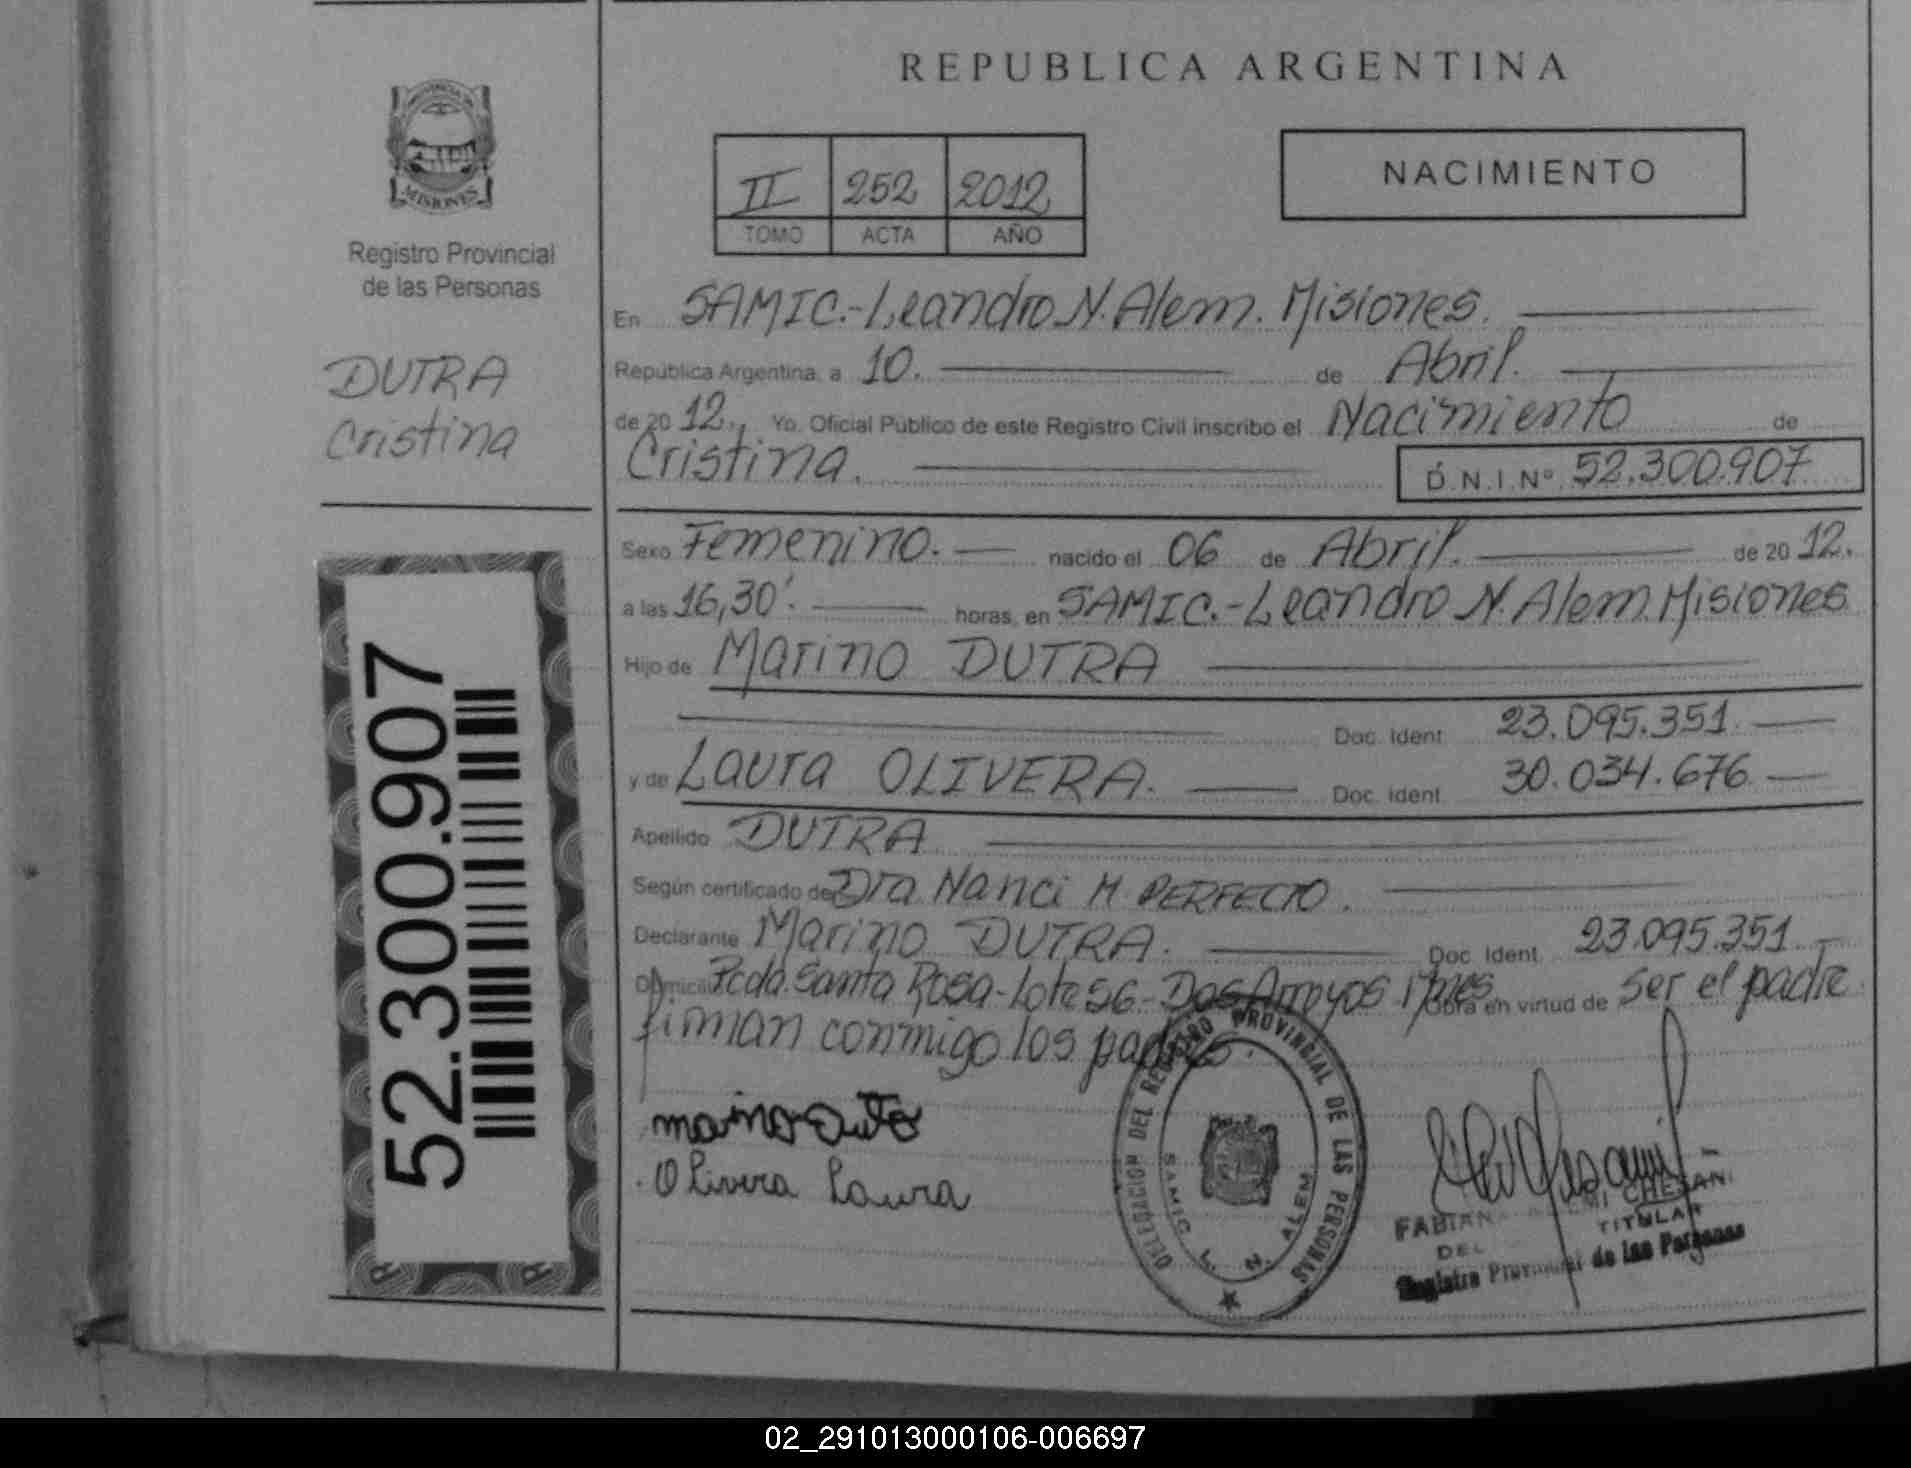 REPUBLICA ARGENTINA
PROVINCIA DE
MISIONES
Registro Provincial
de las Personas
DUTRA
Cristina
52.300.907
II 252 2012
TOMO ACTA AÑO
NACIMIENTO
En SAMIC.-Leandro N. Alem. Misiones.
República Argentina, a 10. de Abril.
de 2012., Yo, Oficial Público de este Registro Civil inscribo el Nacimiento de
Cristina. D.N.I.Nº 52.300.907
Sexo Femenino. nacido el 06 de Abril. de 2012.
a las 16,30'. horas, en SAMIC.-Leandro N. Alem. Misiones
Hijo de Marino DUTRA
Doc. Ident. 23.095.351.
y de Laura OLIVERA. Doc. Ident. 30.034.676
Apellido DUTRA
Según certificado de Dra Nanci M PERFECTO.
Declarante Marino DUTRA. Doc. Ident. 23.095.351
Domicilio Pcda. Santa Rosa-Lote 56-Dos Arroyos Mnes Obra en virtud de ser el padre
firman conmigo los padres.
Olivera Laura
DELEGACION DEL REGISTRO PROVINCIAL DE LAS PERSONAS
SAMIC L. N. ALEM
FABIANA CHESANI
TITULAR
DEL
Registro Provincial de las Personas
02_291013000106-006697